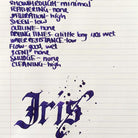 SHOWTHROUGH - minimal
FEATHERING - none
SATURATION - high
SHEEN - low
OUTLINE - none
DRYING TIMES - a little long
WATER RESISTANCE - low
FLOW - good, wet
SCENT - none
SMUDGE - none
CLEANING - high
Iris